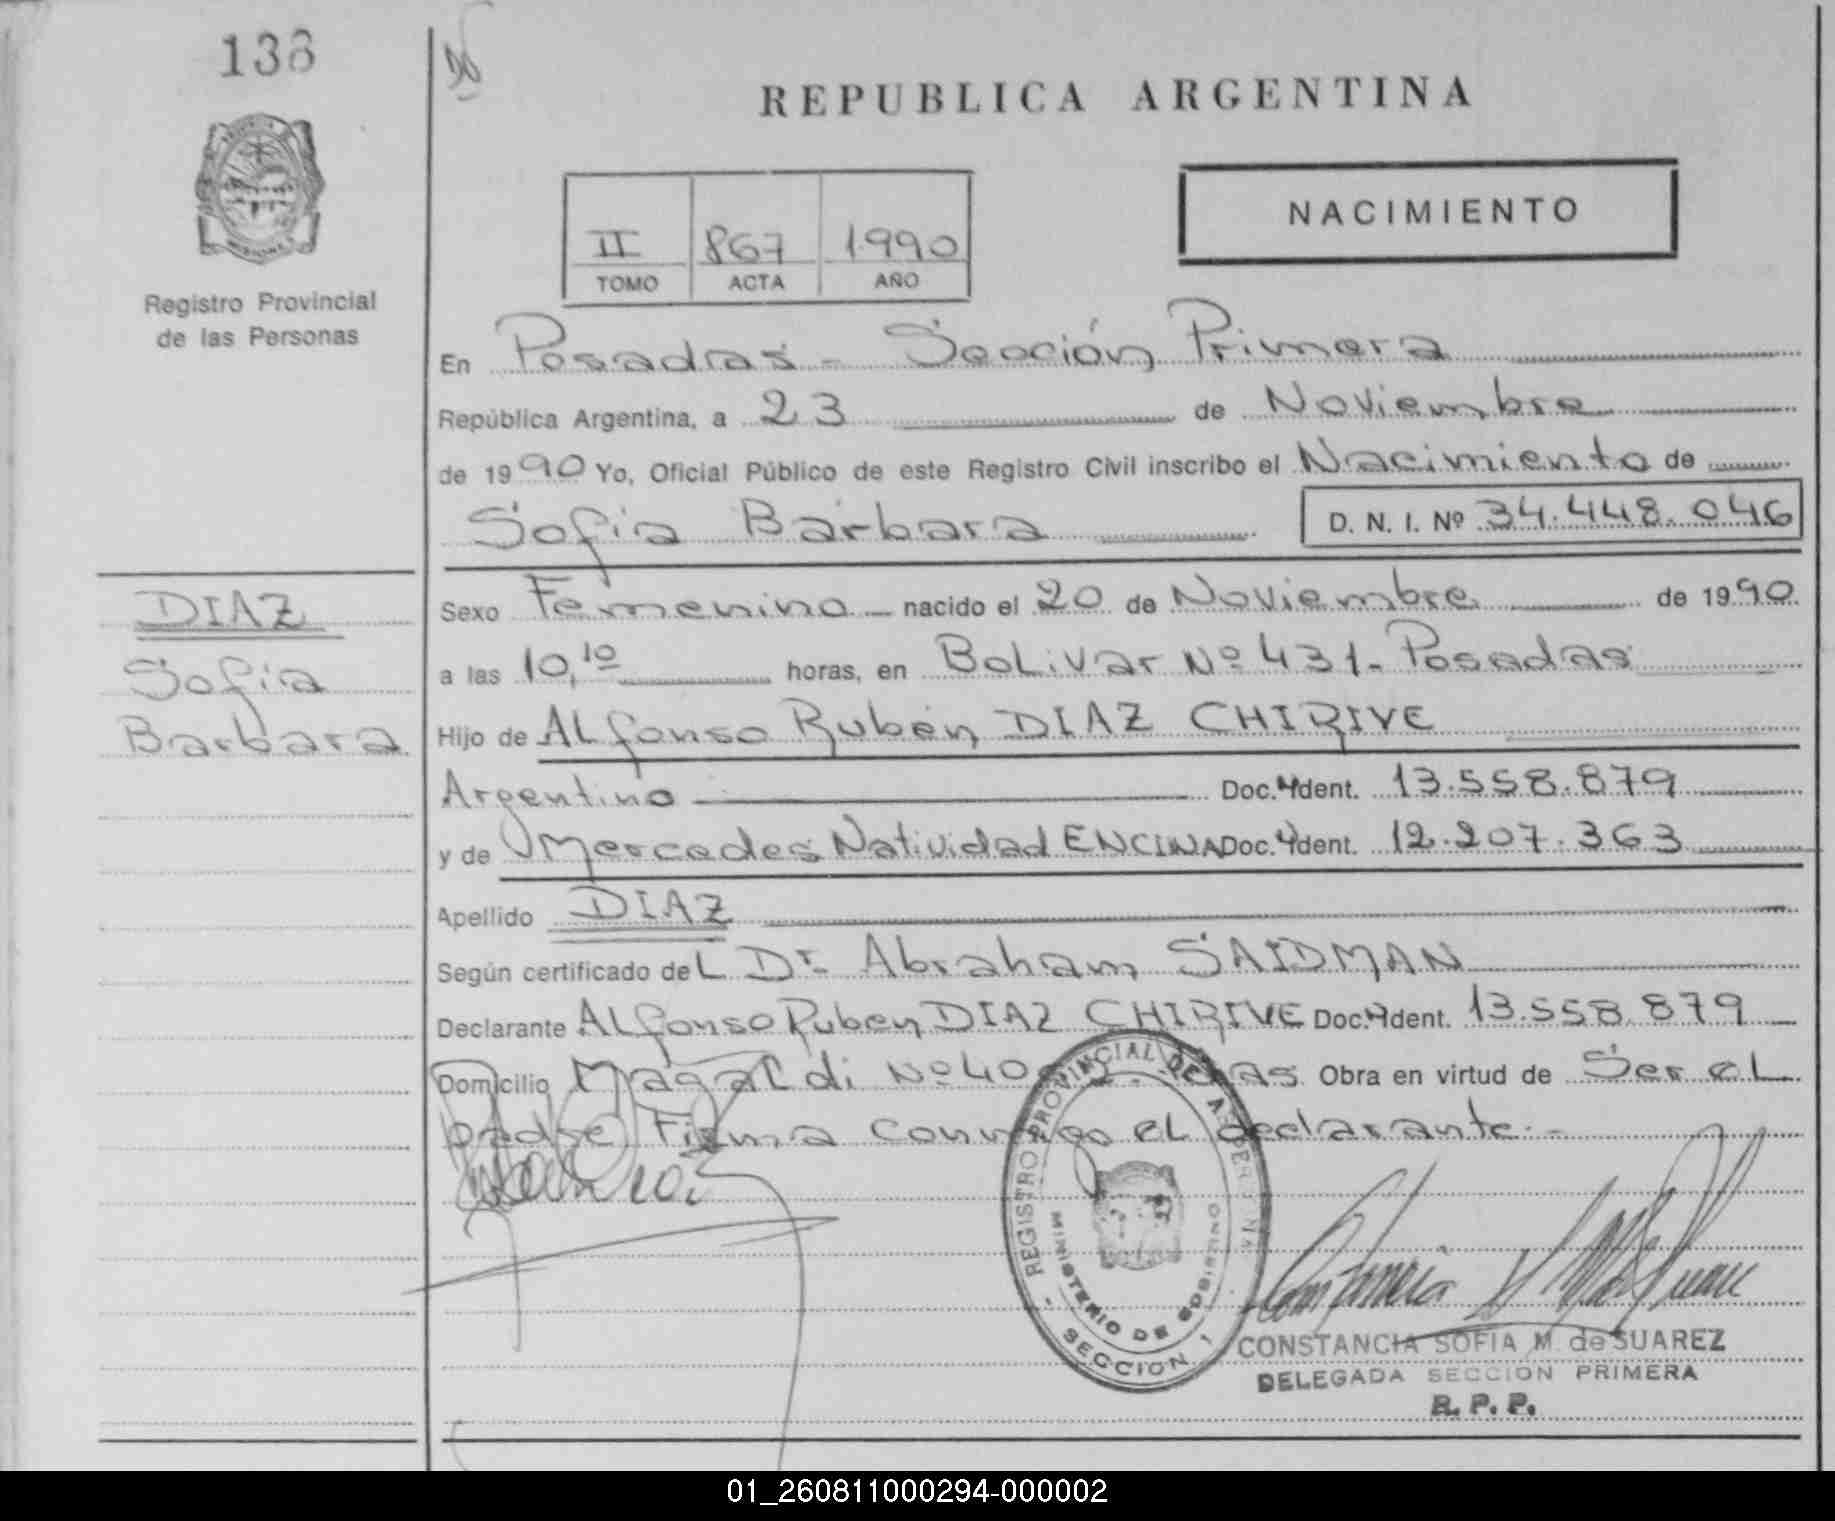 138
REPUBLICA ARGENTINA
NACIMIENTO
II 867 1990
TOMO ACTA AÑO
Registro Provincial
de las Personas
En Posadas - Sección Primera
República Argentina, a 23 de Noviembre
de 1990 Yo, Oficial Público de este Registro Civil inscribo el Nacimiento de
Sofía Bárbara D. N. I. Nº 34.448.046
DIAZ
Sofía
Barbara
Sexo Femenino nacido el 20 de Noviembre de 1990
a las 10,10 horas, en Bolivar Nº 431- Posadas
Hijo de Alfonso Rubén DIAZ CHIRIVE
Argentino Doc. Ident. 13.558.879
y de Mercedes Natividad ENCINA Doc. Ident. 12.207.363
Apellido DIAZ
Según certificado del Dr. Abraham SAIDMAN
Declarante Alfonso Ruben DIAZ CHIRIVE Doc. Ident. 13.558.879
Domicilio Magaldi Nº 40 Obra en virtud de Ser el
padre Firma conmigo el declarante.-
REGISTRO PROVINCIAL DE
MINISTERIO DE GOBIERNO
- SECCION 1 -
CONSTANCIA SOFIA M. de SUAREZ
DELEGADA SECCION PRIMERA
R. P. P.
01_260811000294-000002